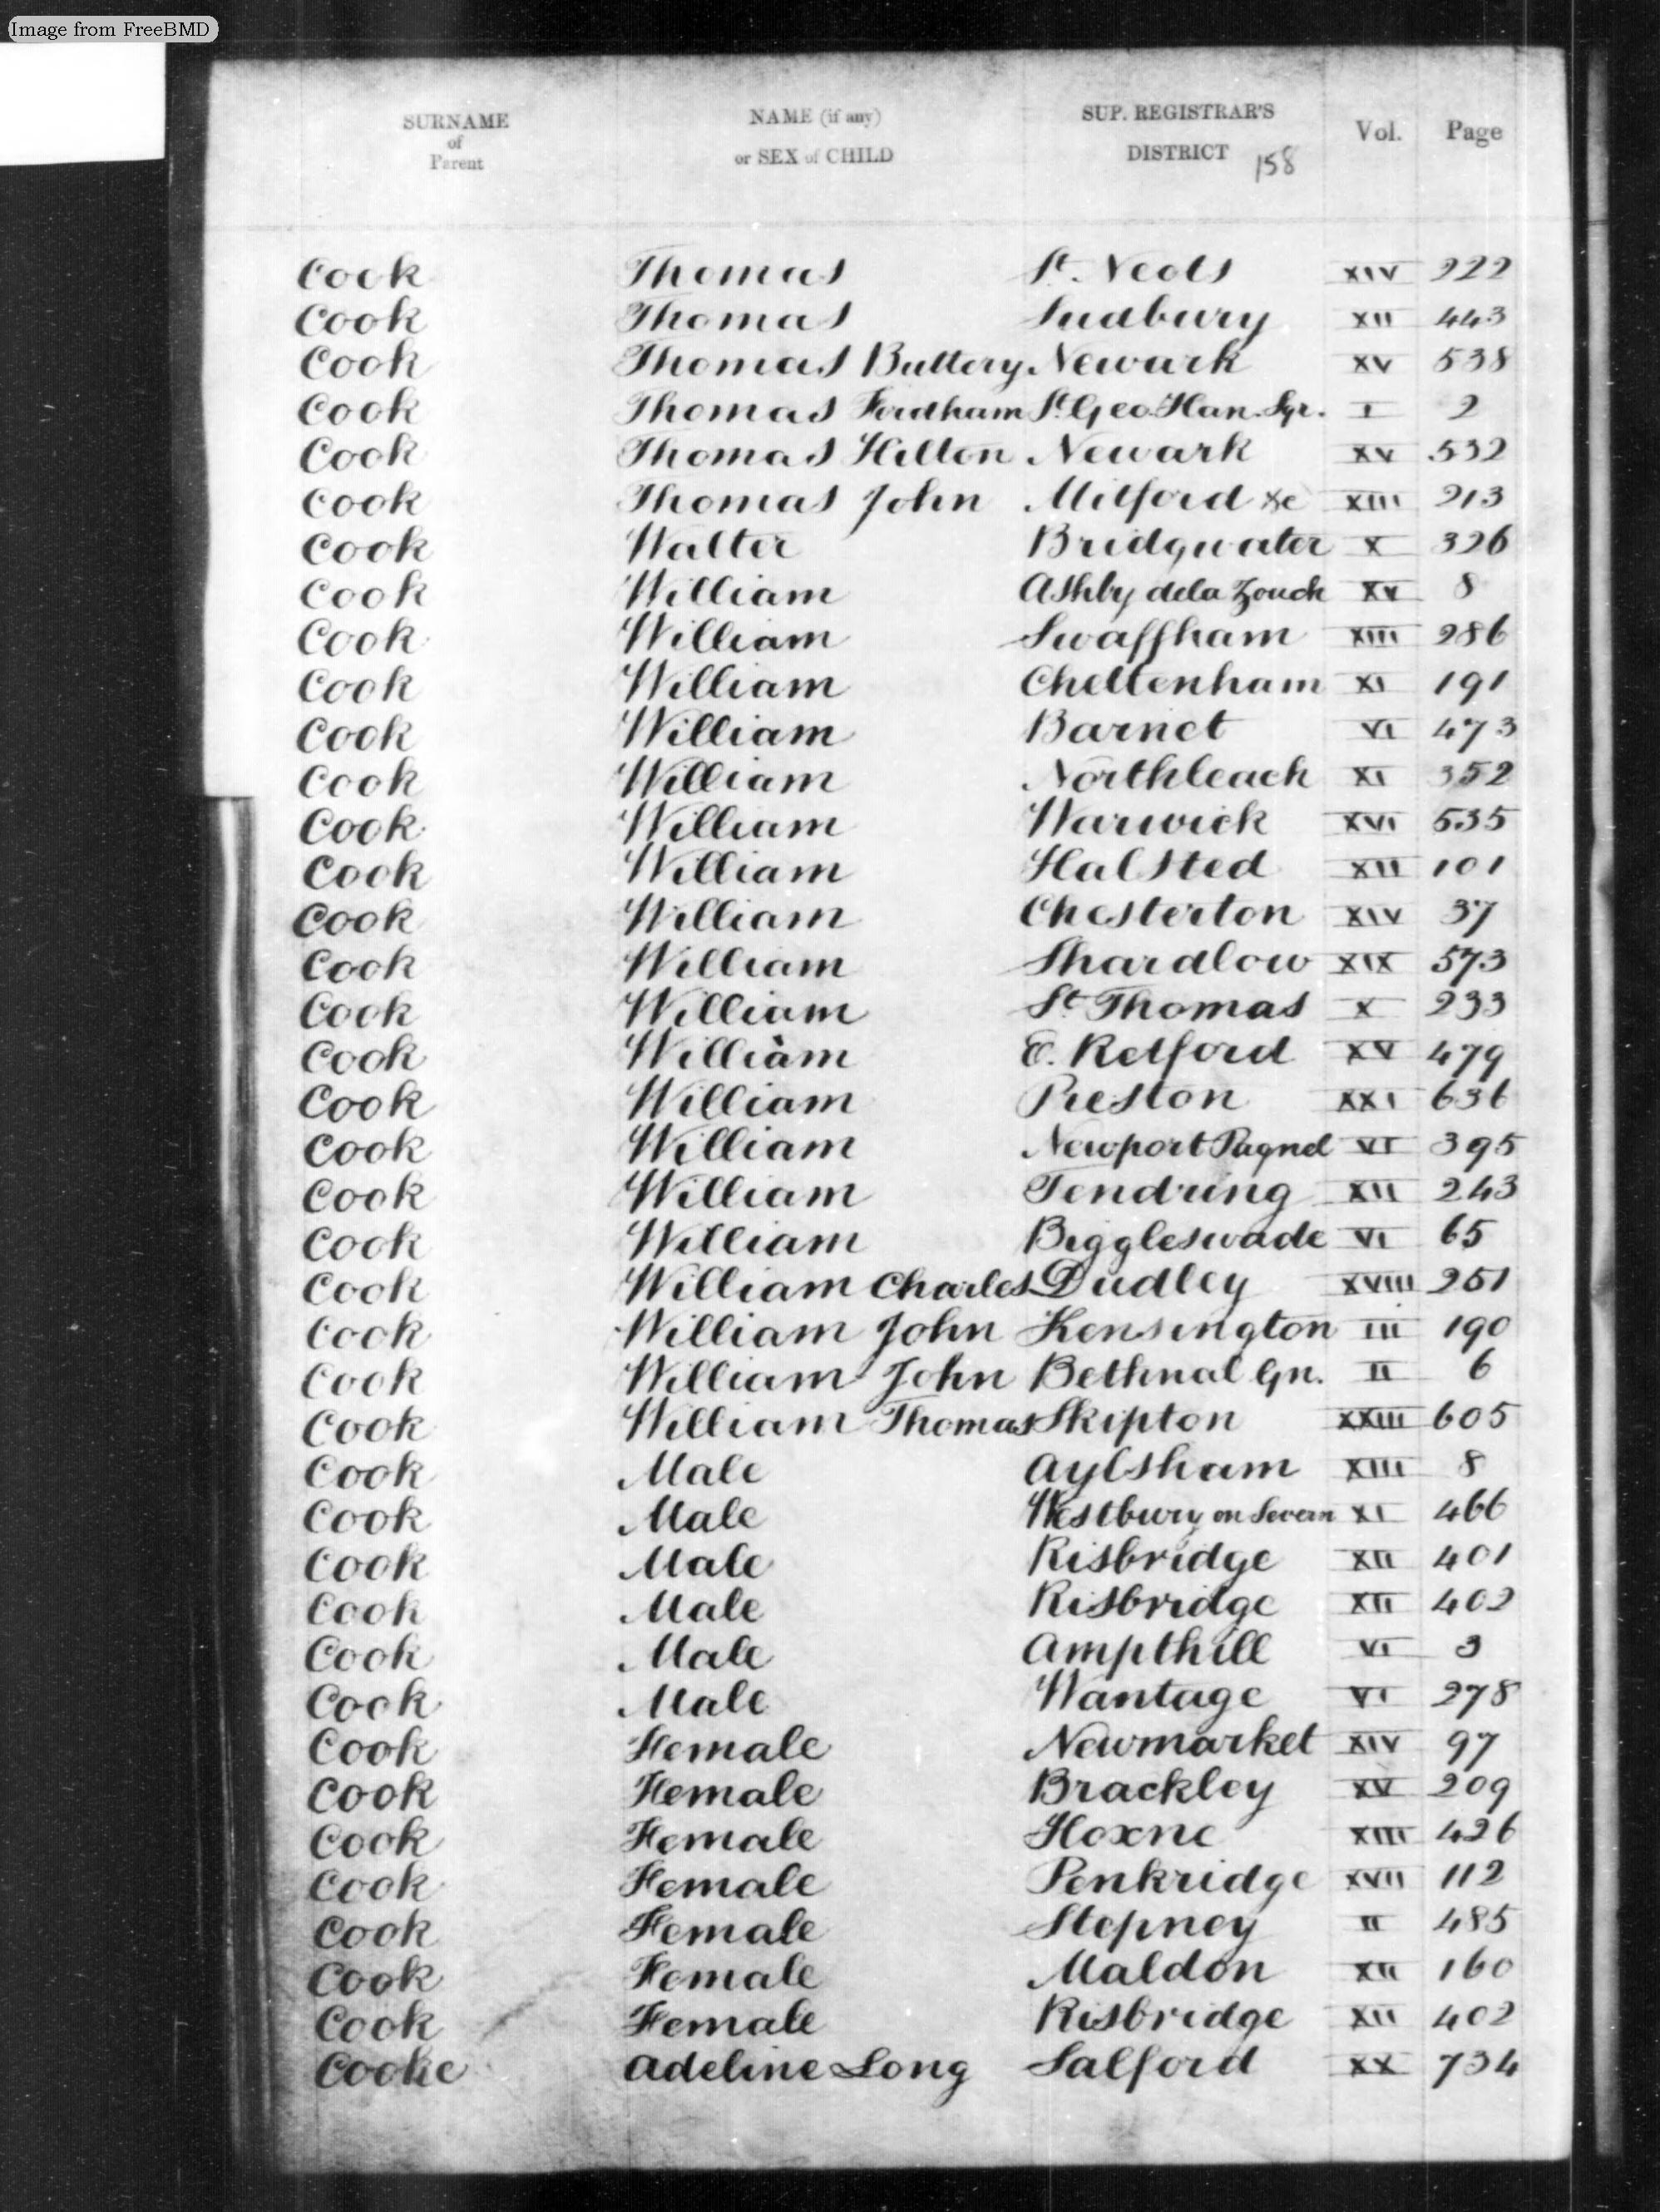 Image from FreeBMD
SURNAME of Parent NAME (if any) or SEX of CHILD SUP. REGISTRAR'S DISTRICT Vol. Page
158
Cook Thomas St. Neots XIV 222
Cook Thomas Sudbury XII 443
Cook Thomas Buttery Newark XV 538
Cook Thomas Fordham St. Geo. Han. Sqr. I 2
Cook Thomas Hilton Newark XV 532
Cook Thomas John Mitford &c XIII 213
Cook Walter Bridgwater X 326
Cook William Ashby dela Zouch XV 8
Cook William Swaffham XIII 286
Cook William Cheltenham XI 191
Cook William Barnet VI 473
Cook William Northleach XI 352
Cook William Warwick XVI 535
Cook William Halsted XII 101
Cook William Chesterton XIV 37
Cook William Shardlow XIX 573
Cook William St Thomas X 233
Cook William E. Retford XV 479
Cook William Preston XXI 636
Cook William Newport Pagnel VI 395
Cook William Tendring XII 243
Cook William Biggleswade VI 65
Cook William Charles Dudley XVIII 251
Cook William John Kensington III 190
Cook William John Bethnal Gn. II 6
Cook William Thomas Skipton XXIII 605
Cook Male Aylsham XIII 8
Cook Male Westbury on Severn XI 466
Cook Male Risbridge XII 401
Cook Male Risbridge XII 402
Cook Male Ampthill VI 3
Cook Male Wantage VI 278
Cook Female Newmarket XIV 97
Cook Female Brackley XV 209
Cook Female Hoxne XIII 426
Cook Female Penkridge XVII 112
Cook Female Stepney II 485
Cook Female Maldon XII 160
Cook Female Risbridge XII 402
Cooke Adeline Long Salford XX 734